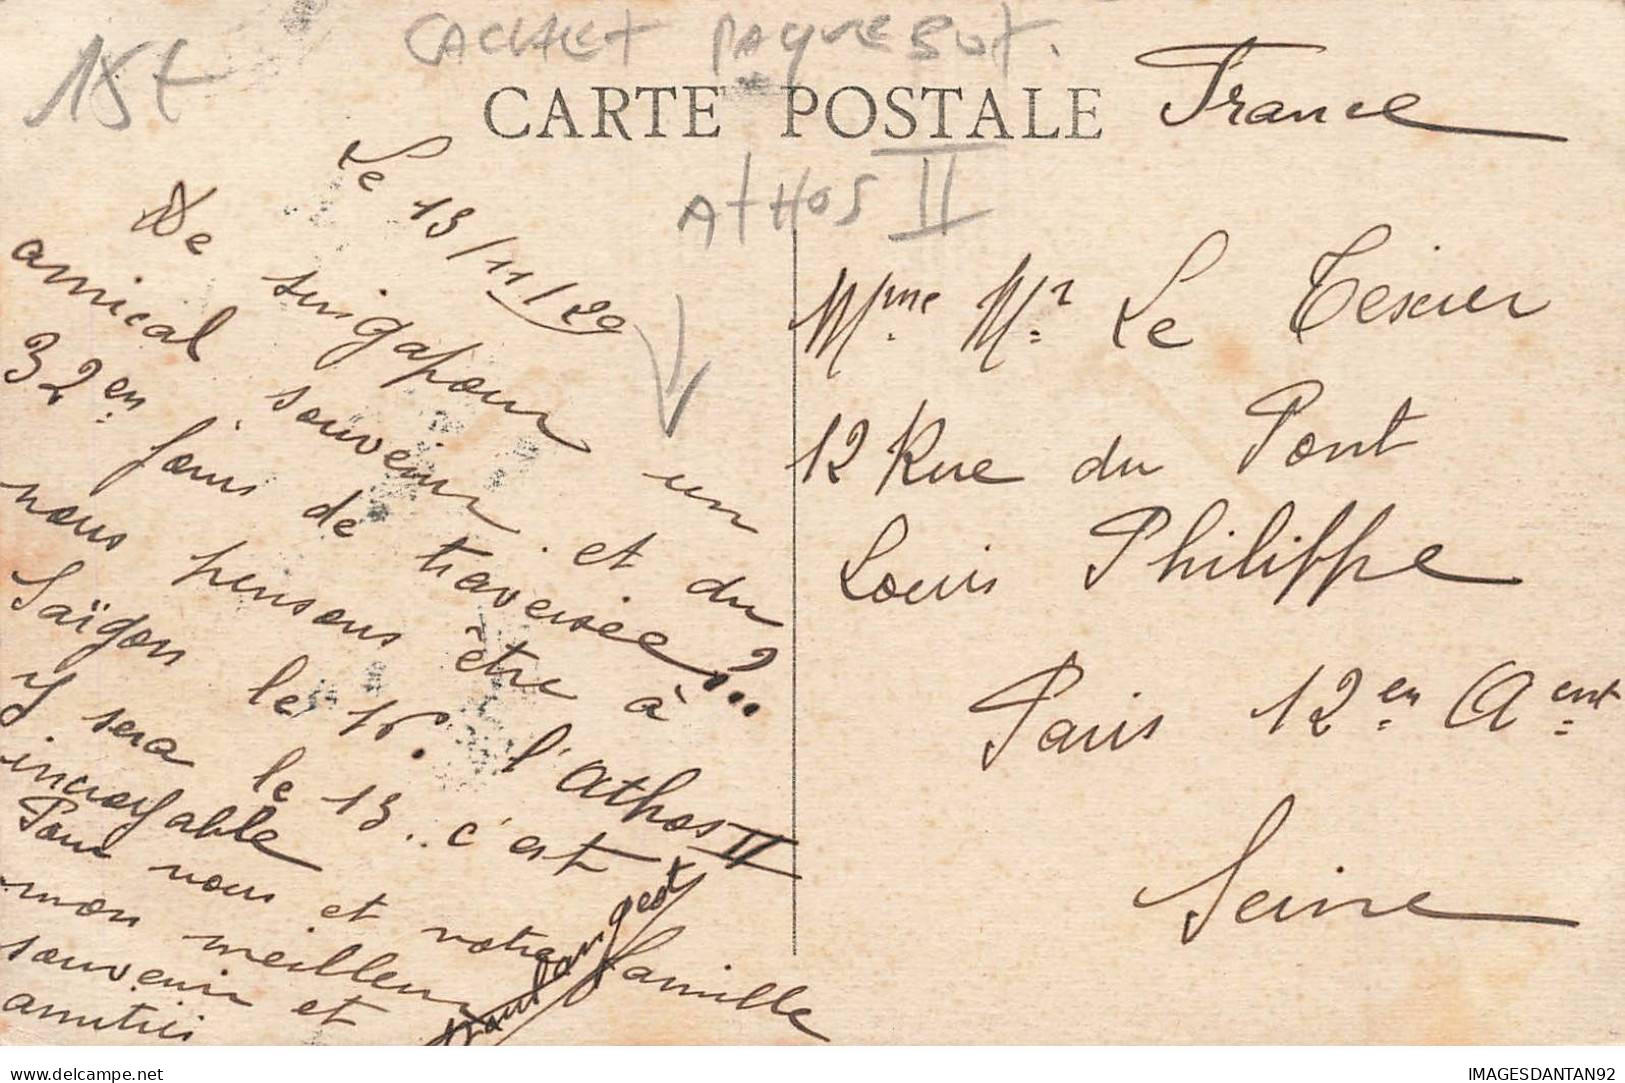 15€
CACHET PAQUEBOT.
CARTE POSTALE
ATHOS II
France
Le 13/11/29
De Singapour un
amical souvenir et du
32en jour de traversée ?...
nous pensons être à
Saïgon le 16. l'Athos II
y sera le 13.. c'est
incroyable
Pour vous et votre famille
mon meilleur
souvenir et
amitiés
Mme Mr Le Texier
12 Rue du Pont
Louis Philippe
Paris 12en Aent
Seine
delcampe.net
IMAGESDANTAN92